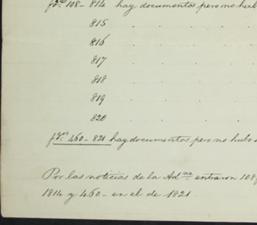 fs. 108 - 814 hay documentos pero no hub
815
816
817
818
819
820
fs. 460 - 821 hay documentos pero no hubo
Por las noticias de la Ad.na entraron 108 f
1814 y 460 - en el de 1821